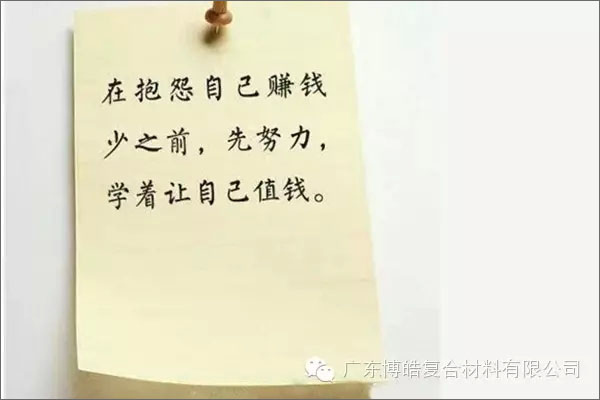 在抱怨自己赚钱
少之前，先努力，
学着让自己值钱。
广东博皓复合材料有限公司